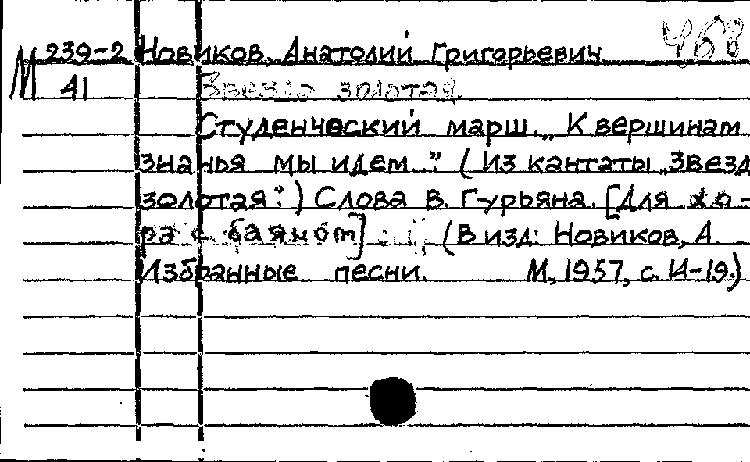 М 239-2 Новиков, Анатолий Григорьевич 468
41 Звезда золотая.
Студенческий марш. „К вершинам
знанья мы идем..." (Из кантаты „Звезд
золотая".) Слова В. Гурьяна. [Для хо-
ра с баяном] (В изд: Новиков, А.
Избранные песни. М, 1957, с. 11-19.)